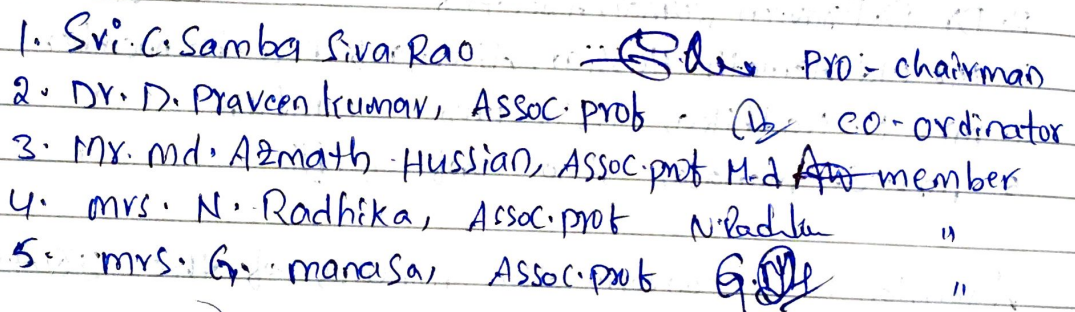 1. Sri. C. Samba Siva Rao Pro- chairman
2. Dr. D. Praveen kumar, Assoc. prof. co-ordinator
3. Mr. md. Azmath Hussian, Assoc. prof M.d member
4. mrs. N. Radhika, Assoc. prof N. Radhika "
5. mrs. G. manasa, Assoc. prof G. "